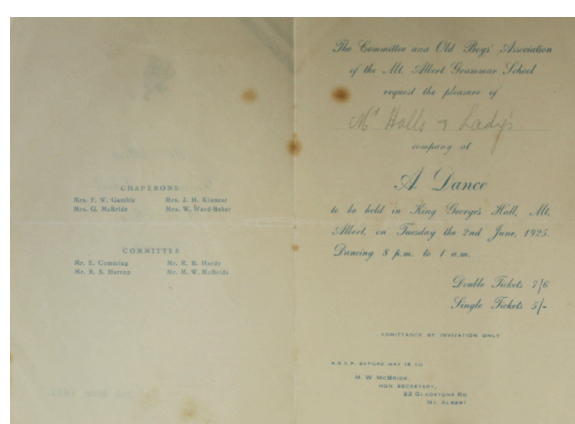 CHAPERONS
Mrs. F. W. Gamble Mrs. J. H. Kinnear
Mrs. G. McBride Mrs. W. Ward-Baker
COMMITTEE
Mr. E. Cumming Mr. R. B. Hardy
Mr. R. S. Harrop Mr. M. W. McBride
The Committee and Old Boys' Association
of the Mt. Albert Grammar School
request the pleasure of
Mr Halls & Lady's
company at
A Dance
to be held in King George's Hall, Mt.
Albert, on Tuesday the 2nd June, 1925.
Dancing 8 p.m. to 1 a.m.
Double Tickets 7/6
Single Tickets 5/-
ADMITTANCE BY INVITATION ONLY
R.S.V.P. BEFORE MAY 18 TO
M. W. McBRIDE,
HON. SECRETARY,
22 GLADSTONE RD
MT. ALBERT